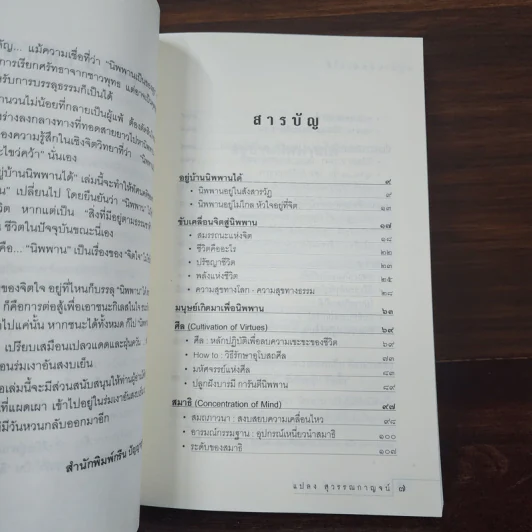 ัญ... แม้ความเชื่อที่ว่า "นิพพานเป็น
การเรียกศรัทธาจากชาวพุทธ แต่อาจ
รับการบรรลุธรรมก็เป็นได้
นวนไม่น้อยที่กลายเป็นผู้แพ้
ร่างลงกลางทางที่ทอดสายยาวไป
องความรู้สึกในเชิงจิตวิทยาที่ว่า
ไขว่คว้า" นั่นเอง
ู่บ้านนิพพานได้" เล่มนี้จะทำให้
น" เปลี่ยนไป โดยยืนยันว่า
ิต หากแต่เป็น "สิ่งที่มีอยู่ตามธรรม
ชีวิตในปัจจุบันขณะนี่เอง
คือ... "นิพพาน" เป็นเรื่องของ "จิตใจ"
ของจิตใจ อยู่ที่ไหนก็บรรลุ
ก็คือการต่อสู้เพื่อเอาชนะกิเลสในใจ
าไปแค่นั้น หากชนะได้ทั้งหมด ก็ไป
เปรียบเสมือนเปลวแดดและฝุ่นควัน
อนร่มเงาอันสงบเย็น
อเล่มนี้จะมีส่วนสนับสนุนให้ท่าน
ที่แผดเผา เข้าไปอยู่ในร่มเงาอันสงบ
มีวันหวนกลับออกมาอีก
สำนักพิมพ์กรีน ปัญญา
สารบัญ
อยู่บ้านนิพพานได้ ๙
• นิพพานอยู่ในสังสารวัฏ ๙
• นิพพานอยู่ไม่ไกล หัวใจอยู่ที่จิต ๑๓
ขับเคลื่อนจิตสู่นิพพาน ๑๗
• สมรรถนะแห่งจิต ๑๘
• ชีวิตคืออะไร ๒๒
• ปรัชญาชีวิต ๒๒
• พลังแห่งชีวิต ๒๕
• ความสุขทางโลก - ความสุขทางธรรม ๒๘
มนุษย์เกิดมาเพื่อนิพพาน ๖๓
ศีล (Cultivation of Virtues) ๖๙
• ศีล : หลักปฏิบัติเพื่อลบความเชอะชะของชีวิต ๖๙
• How to : วิธีรักษาอุโบสถศีล ๘๓
• มหัศจรรย์แห่งศีล ๘๔
• ปลูกฝังบารมี การันตีนิพพาน ๘๙
สมาธิ (Concentration of Mind) ๙๗
• สมถภาวนา : สงบสยบความเคลื่อนไหว ๙๘
• อารมณ์กรรมฐาน : อุปกรณ์เหนี่ยวนำสมาธิ ๑๐๐
• ระดับของสมาธิ ๑๐๗
แปลง สุวรรณกาญจน์ ๗